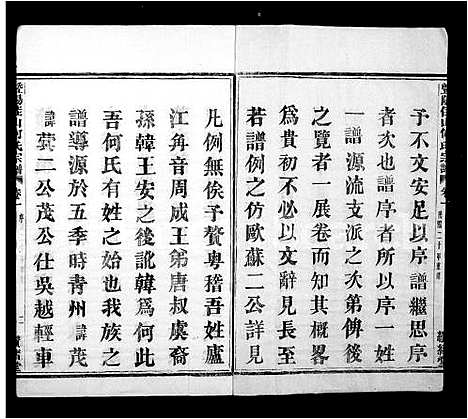 予不文安足以序譜繼思序
者次也序譜序者所以序一
譜源流支派之次第俾後
之覽者一展卷而知其槪畧
爲貴初不以行文爲見長至
若譜例之仿歐蘇二公詳見
凡例無俟予贅粤稽吾姓廬
江角音周成王弟唐叔虞裔
孫韓王安之後訛韓爲何此
吾何氏有姓之始也我族之
譜導源於五季時靑州諱茂
諱蓂二公茂公仕吳越輕車
暨陽佳山何氏宗譜
卷一
序
二